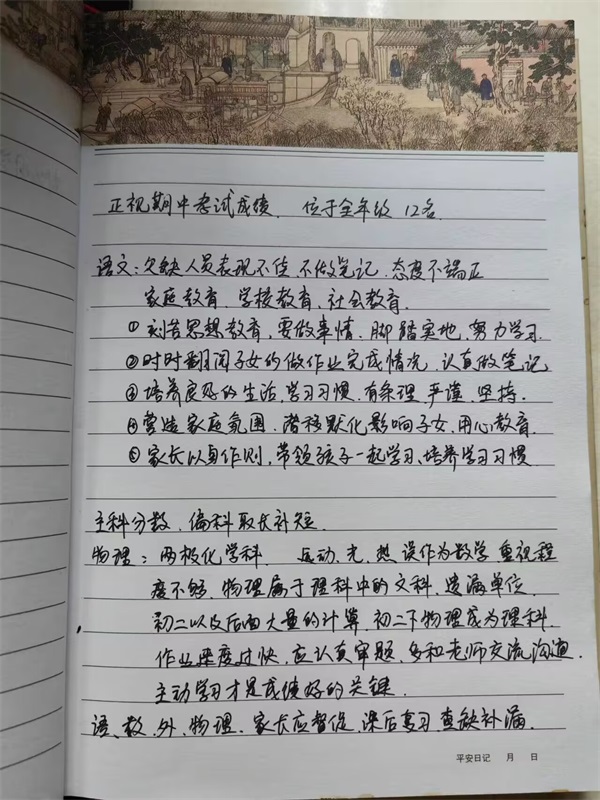 正视期中考试成绩、位于全年级 12名.
语文：欠缺人员表现不佳、不做笔记、态度不端正
家庭教育、学校教育、社会教育.
①刻苦思想教育，要做事情、脚踏实地、努力学习.
②时时翻阅子女的做作业完成情况、认真做笔记、
③培养良好的生活、学习习惯、有条理、严谨、坚持.
④营造家庭氛围、潜移默化影响子女，用心教育.
⑤家长以身作则，带领孩子一起学习、培养学习习惯
主科分数、偏科取长补短.
物理：两极化学科 运动、光、热 误作为数学 重视程
度不够、物理属于理科中的文科、遗漏单位、
初二以及后面大量的计算、初二下物理成为理科
作业速度过快、应认真审题、多和老师交流沟通.
主动学习才是成绩好的关键.
语、数、外、物理、家长应督促、课后复习 查缺补漏.
平安日记 月 日